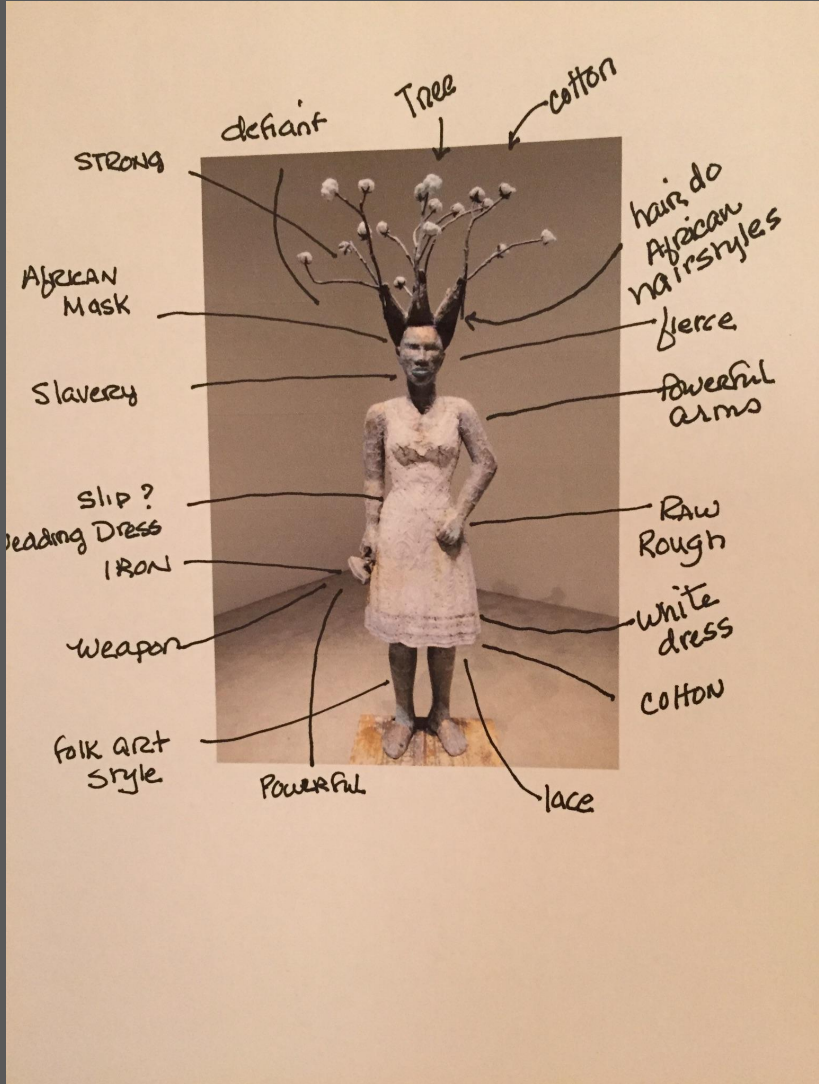 defiant
Tree
cotton
STRONG
hair do
African
hairstyles
AFRICAN
MASK
fierce
Slavery
Powerful
arms
Slip?
Wedding Dress
RAW
Rough
IRON
White
dress
Weapon
COTTON
Folk ART
Style
POWERFUL
lace